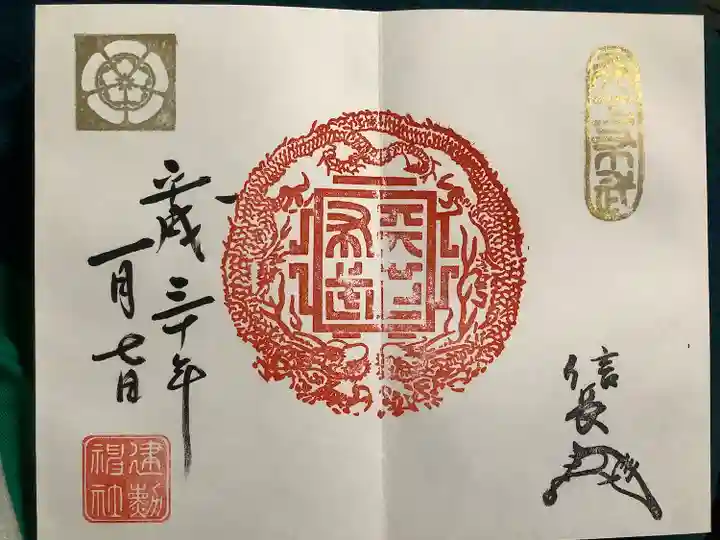 信長
天下
布武
平成三十年
一月七日
建勲
神社